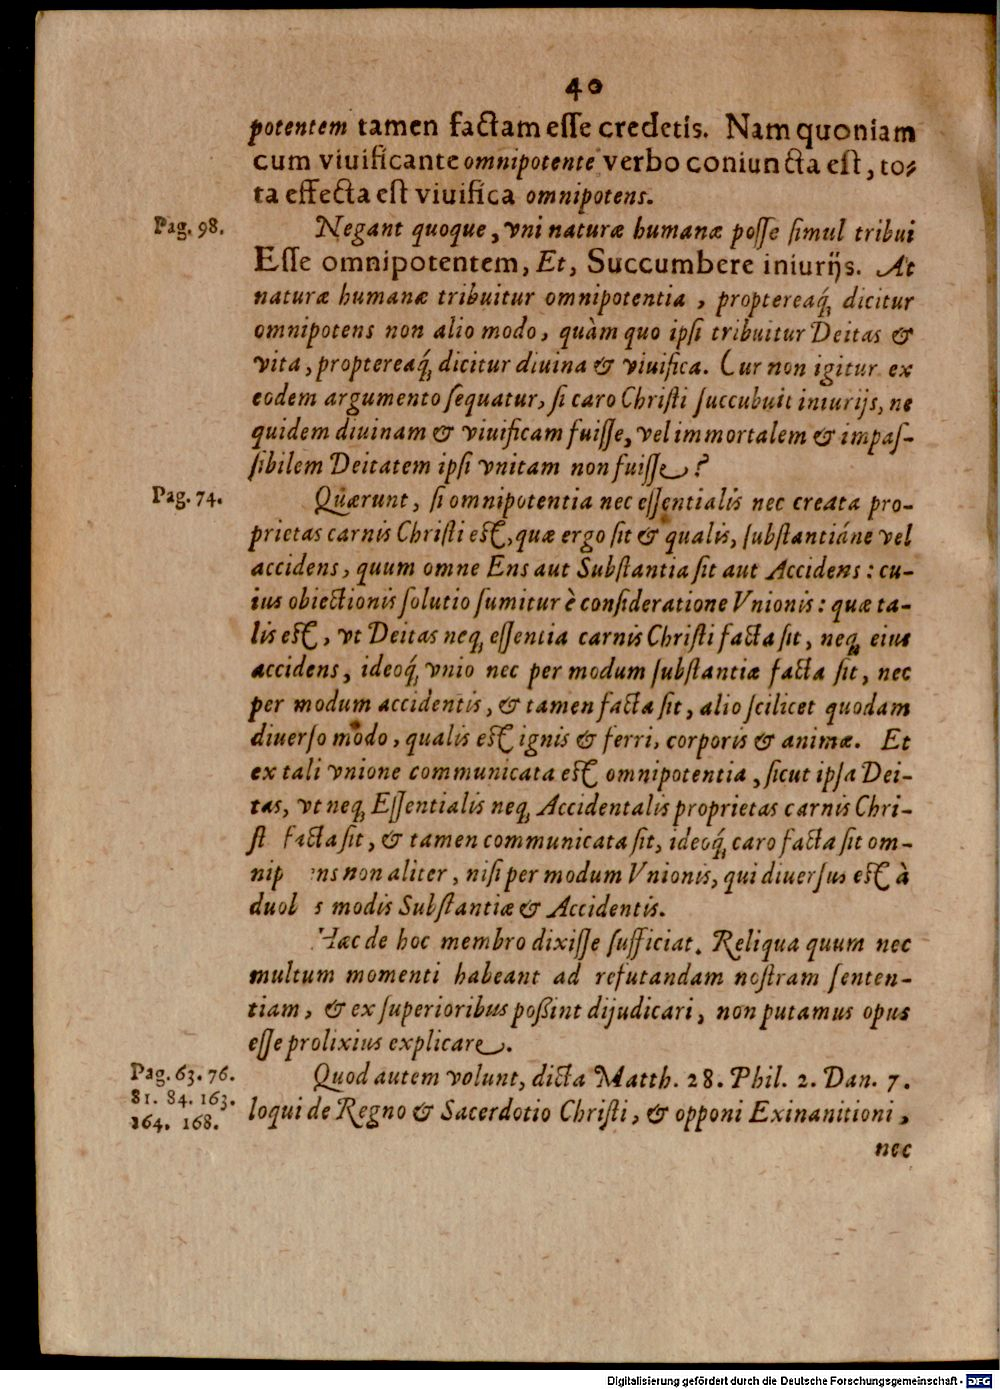 40
potentem tamen factam esse credetis. Nam quoniam
cum viuificante omnipotente verbo coniuncta est, to-
ta effecta est viuifica omnipotens.
Pag. 98.
Negant quoque, vni naturæ humanæ posse simul tribui
Esse omnipotentem, Et, Succumbere iniurijs. At
naturæ humanæ tribuitur omnipotentia, proptereaq́; dicitur
omnipotens non alio modo, quàm quo ipsi tribuitur Deitas &
vita, proptereaq́; dicitur diuina & viuifica. Cur non igitur ex
eodem argumento sequatur, si caro Christi succubuit iniurijs, ne
quidem diuinam & viuificam fuisse, vel immortalem & impas-
sibilem Deitatem ipsi vnitam non fuisse?
Pag. 74.
Quærunt, si omnipotentia nec essentialis nec creata pro-
prietas carnis Christi est, quæ ergo sit & qualis, substantiáne vel
accidens, quum omne Ens aut Substantia sit aut Accidens: cu-
ius obiectionis solutio sumitur è consideratione Vnionis: quæ ta-
lis est, vt Deitas neq; essentia carnis Christi facta sit, neq; eius
accidens, ideoq́; vnio nec per modum substantiæ facta sit, nec
per modum accidentis, & tamen facta sit, alio scilicet quodam
diuerso modo, qualis est ignis & ferri, corporis & animæ. Et
ex tali vnione communicata est omnipotentia, sicut ipsa Dei-
tas, vt neq; Essentialis neq; Accidentalis proprietas carnis Chri-
st facta sit, & tamen communicata sit, ideoq́; caro facta sit om-
nip ens non aliter, nisi per modum Vnionis, qui diuersus est à
duob s modis Substantiæ & Accidentis.
Hæc de hoc membro dixisse sufficiat. Reliqua quum nec
multum momenti habeant ad refutandam nostram senten-
tiam, & ex superioribus possint dijudicari, non putamus opus
esse prolixius explicare.
Pag. 63. 76.
81. 84. 163.
164. 168.
Quod autem volunt, dicta Matth. 28. Phil. 2. Dan. 7.
loqui de Regno & Sacerdotio Christi, & opponi Exinanitioni,
nec
Digitalisierung gefördert durch die Deutsche Forschungsgemeinschaft - DFG